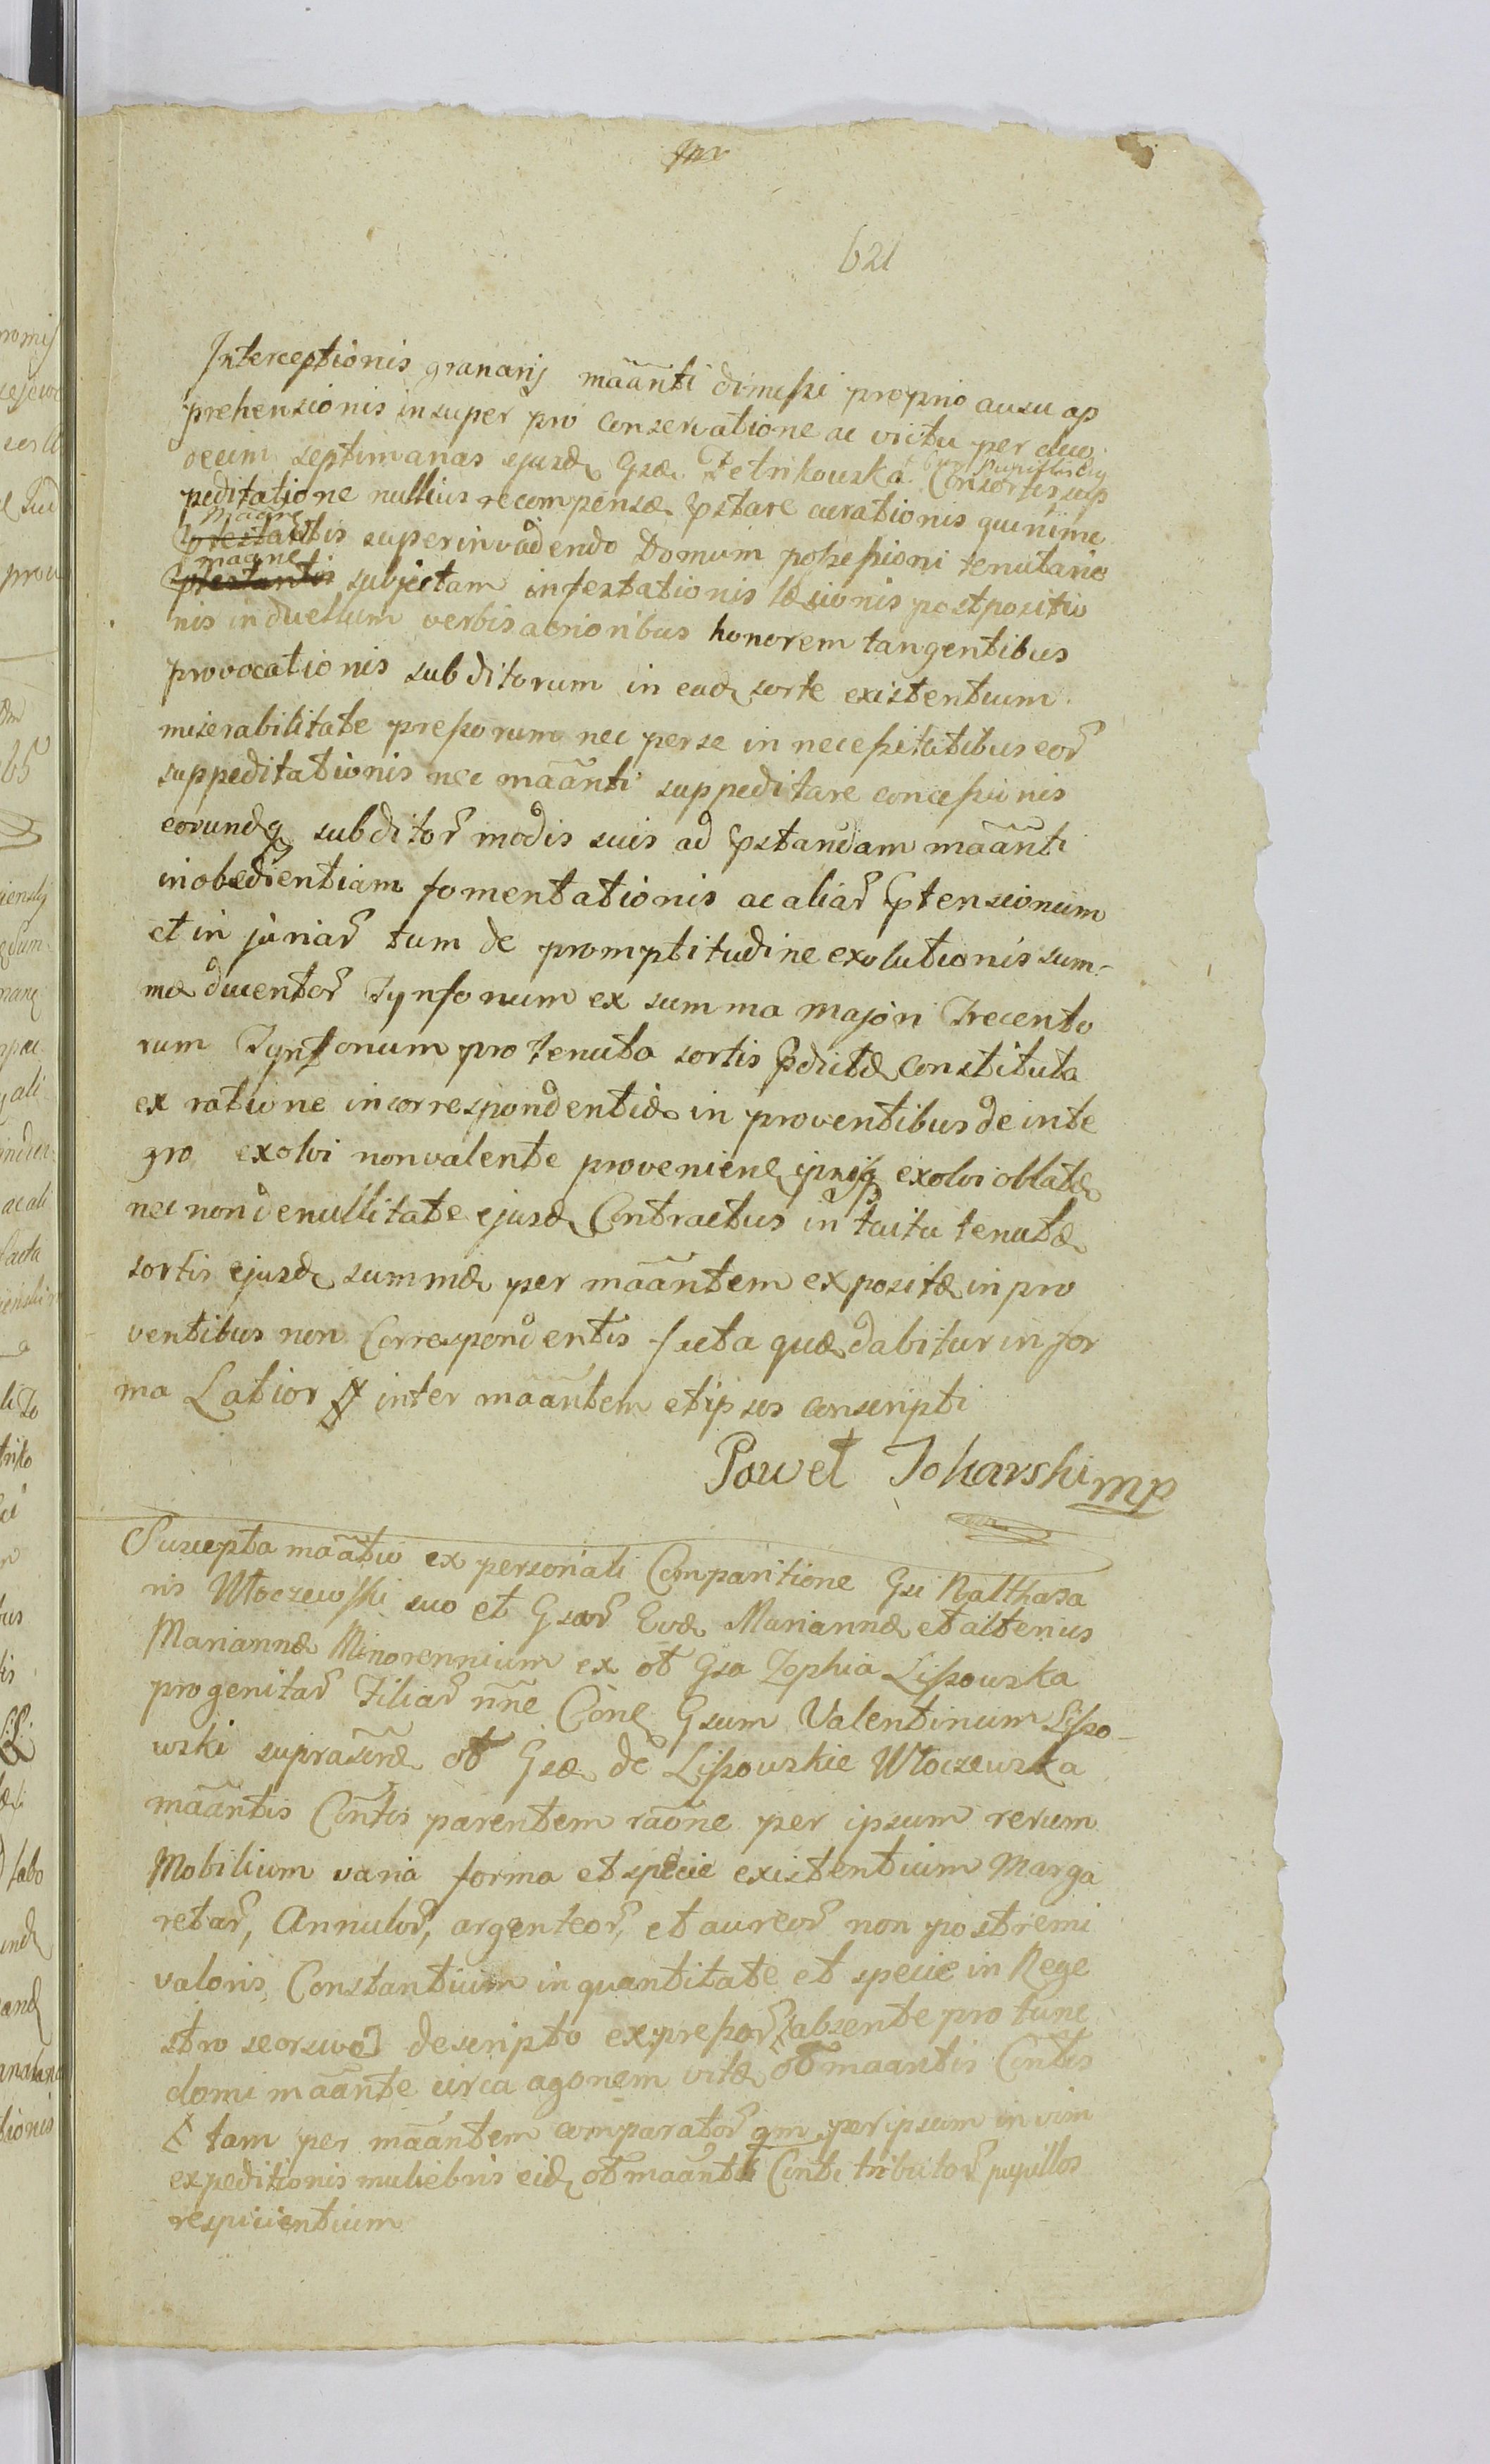 621
Interceptionis granarij mãanti dimissi proprio ausu ap
prehensionis insuper pro conservatione ac victu per duo
decim septimanas ejusd Gsæ Petrikowska Consortis sup
peditatione nullius recompensæ pstare curationis quinime
mãane
superinvadendo Domum possessioni tenutario
maane
subjectam infestationis læsionis postpositio
nis in duellum verbis acrioribus honorem tangentibus
provocationis subditorum in ead sorte existentium
miserabilitate pressorum nec per se in necessitatibus eor
suppeditationis nec mãanti suppeditare concessionis
eorundq subditor modis suis ad pstandam mãanti
inobedientiam fomentationis ac aliar ptensionum
et injuriar tum de promptitudine exolutionis sum-
mæ ducentor Tynfonum ex summa majori Trecento
rum Tynfonum pro tenuta sortis pdictæ constituta
ex ratione incorrespondentiæ in proventibus de inte
gro exolvi non valente provenien ipsisq exolvi oblatæ
nec non de nullitate ejusd Contractus in tuitu tenutæ
sortis ejusd summæ per mãantem expositæ in pro
ventibus non Correspondentis facta quæ dabitur in for
ma Latiori inter mãantem et ipsos conscripti
Pawel Tokarski mp
Suscepta mãatio ex personali Comparitione Gsi Balthasa
ris Włoczewski suo et Gsar Evæ Mariannæ et alterius
Mariannæ Minorennium ex ol Gsa Zophia Lissowska
progenitar Filiar nne Cone Gsum Valentinum Lisso-
wski suprascræ ol Gsæ de Lissowskie Włoczewska
mãantis Contis parentem raone per ipsum rerum
Mobilium varia forma et specie existentium Marga
retar, Annulor, argenteor, et aureor non postremi
valoris Constantium in quantitate et specie in Rege
stro seorsivo descripto expressor absente pro tunc
domi mãante circa agonem vitæ ol maantis Contis
tam per mãantem comparator qm per ipsum in vim
expeditionis muliebris eid ol mãanti Conti tributor pupillos
respicientium